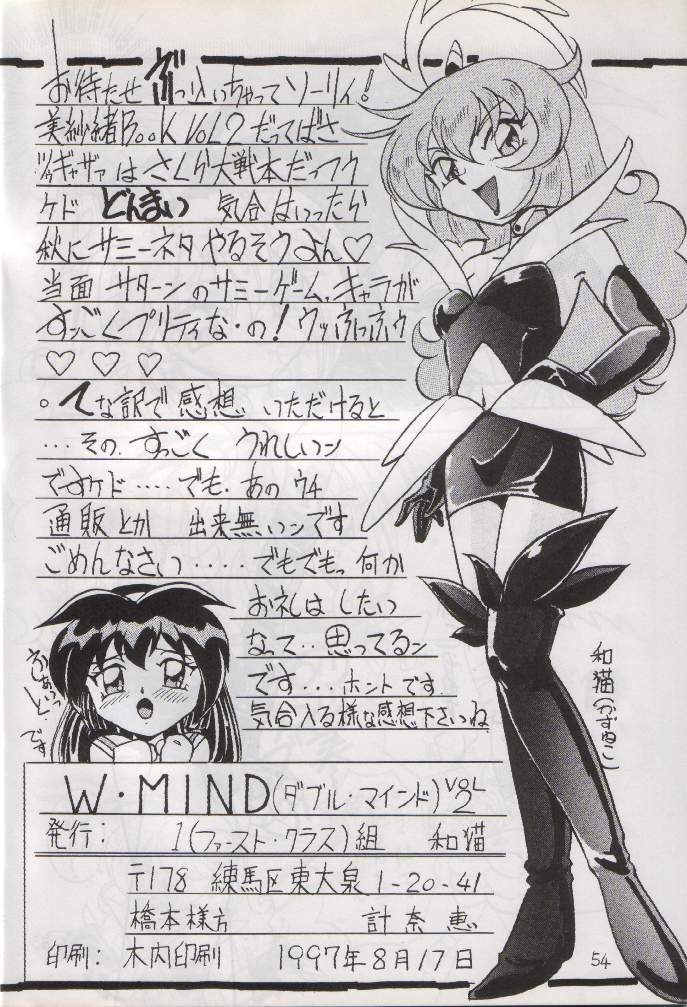 お待たせ ぶっ込いちゃって ソーリィ!
美紗緒BooK VoL2 だってばさ
ツギャザァ は さくら大戦本だっフウ
ケド どんまい 気合はいったら
秋にサミーネタ やるそうよん♡
当面 サターンのサミーゲーム、キャラが
すっごくプリティな・の! ウッふっふウ
♡ ♡ ♡
。てな訳で感想 いただけると
...その、すっごく うれしいン
ですケド ....でも、あの ウチ
通販とか 出来無いンです
ごめんなさい ....でもでもっ 何か
お礼は したい
なって..思ってるン
です...ホントです
気合入る様な感想下さいね
ふぁいっと です
和猫(かずねこ)
W・MIND(ダブル・マインド)VOL2
発行: 1(ファースト・クラス)組 和猫
〒178 練馬区東大泉 1-20-41
橋本様方 計奈恵
印刷: 木内印刷 1997年8月17日
54